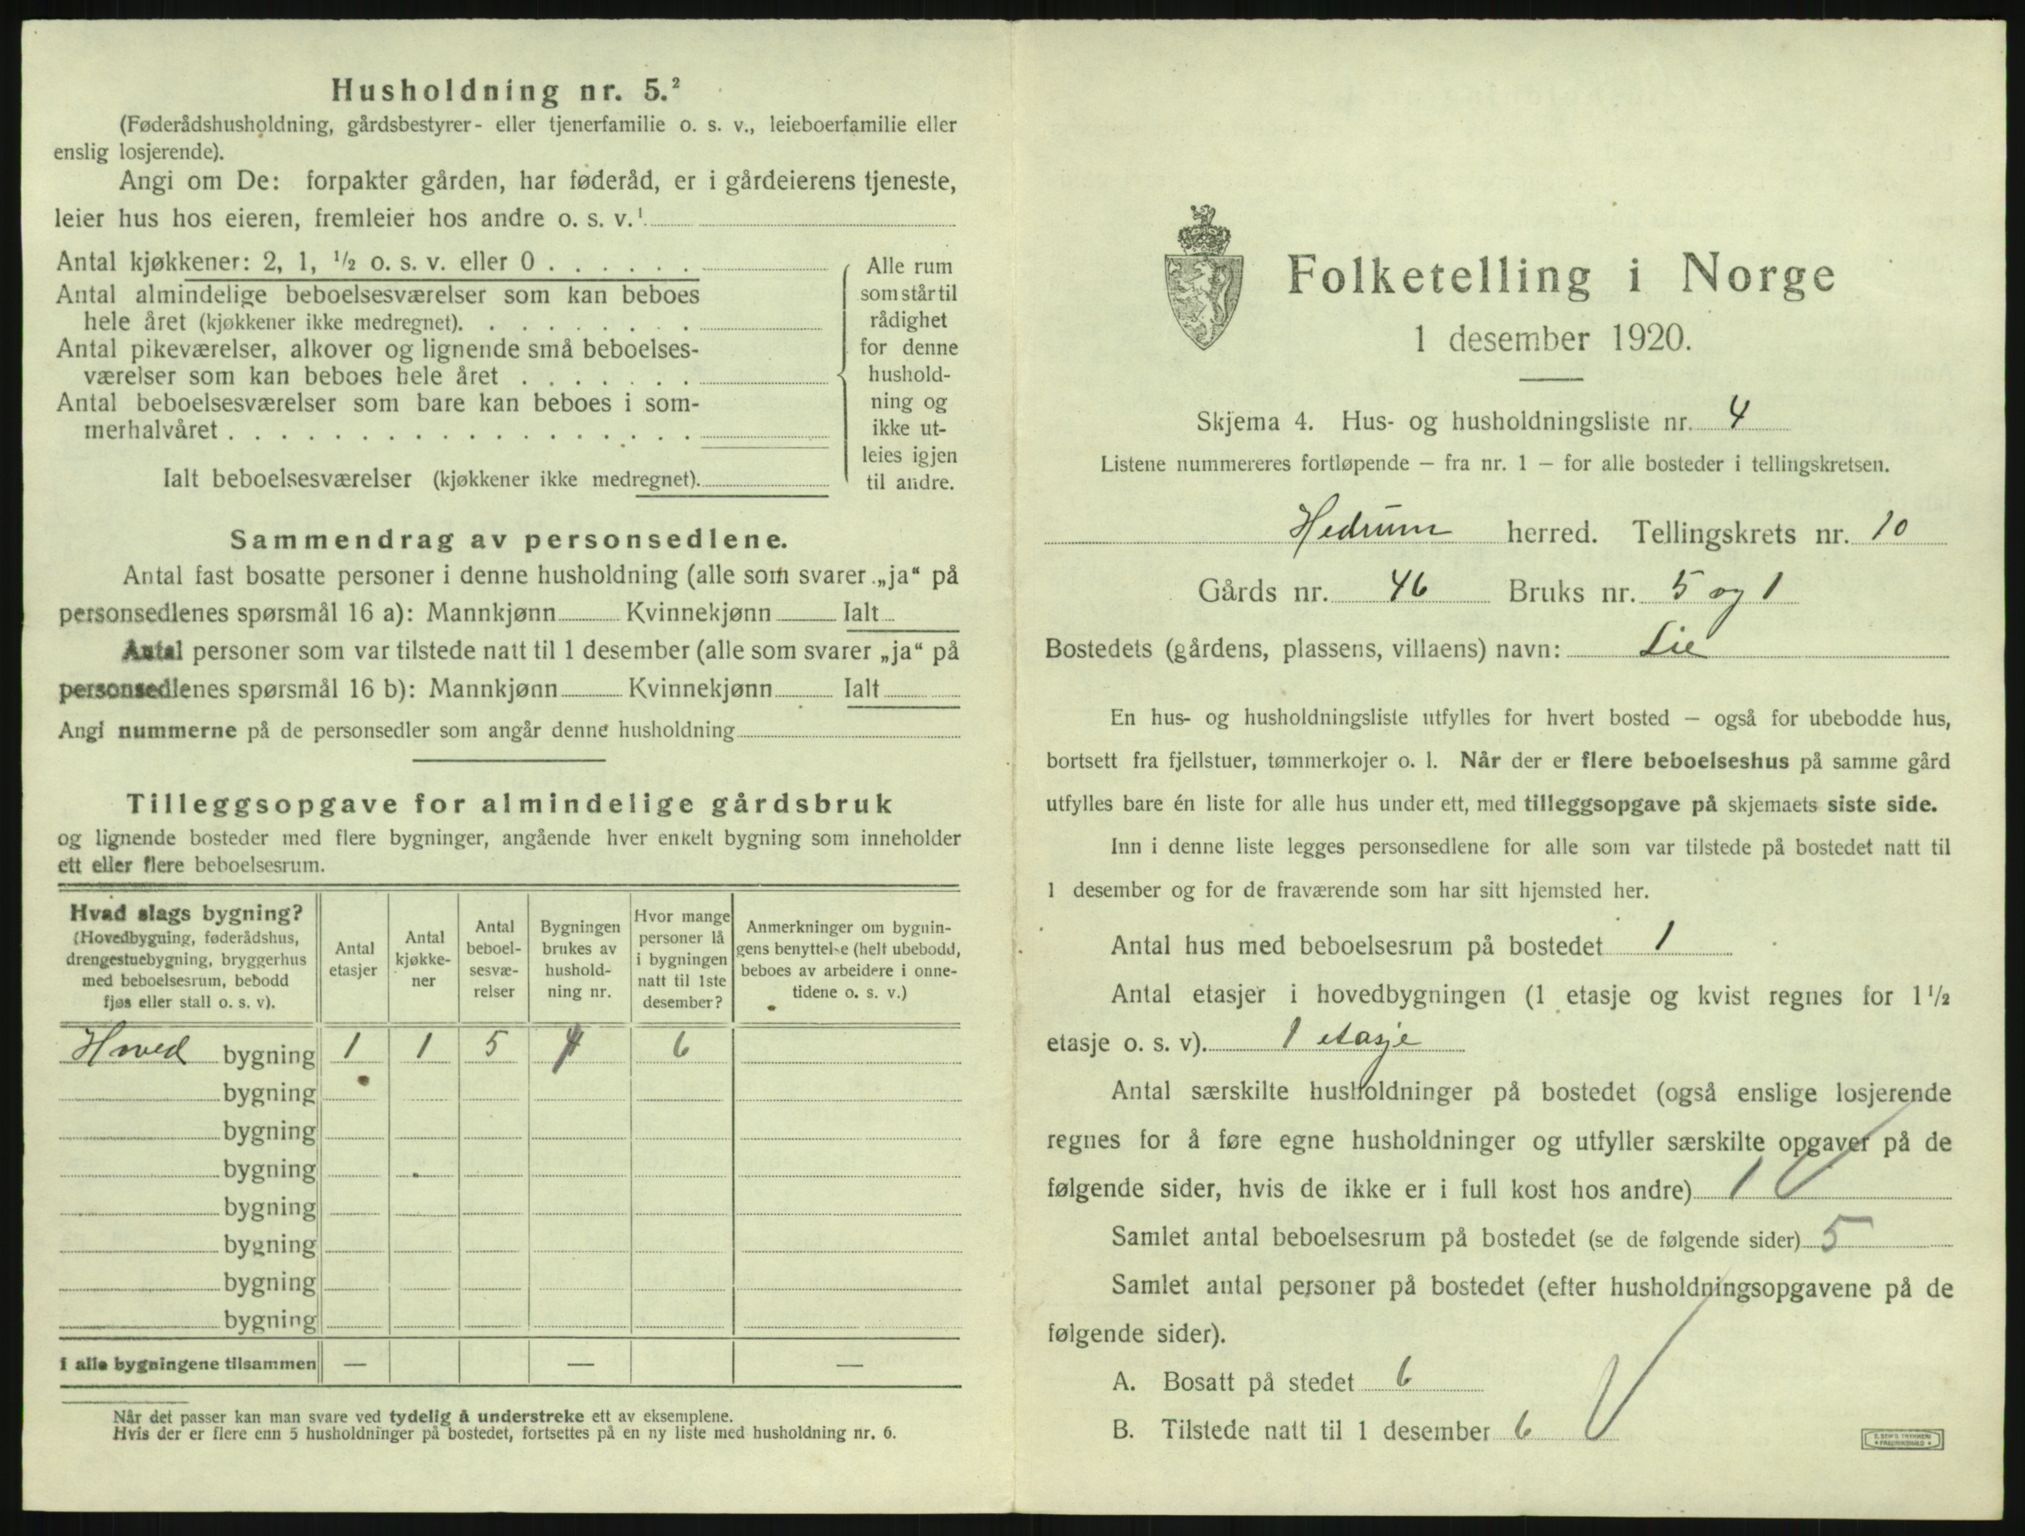 Husholdning nr. 5.²
(Føderådshusholdning, gårdsbestyrer- eller tjenerfamilie o. s. v., leieboerfamilie eller
enslig losjerende).
Angi om De: forpakter gården, har føderåd, er i gårdeierens tjeneste,
leier hus hos eieren, fremleier hos andre o. s. v.¹
Antal kjøkkener: 2, 1, ½ o. s. v. eller 0 . . . . . .
Antal almindelige beboelsesværelser som kan beboes
hele året (kjøkkener ikke medregnet). . . . . . . . .
Antal pikeværelser, alkover og lignende små beboelses-
værelser som kan beboes hele året . . . . . . .
Antal beboelsesværelser som bare kan beboes i som-
merhalvåret . . . . . . . . . . . . . . . . . .
Ialt beboelsesværelser (kjøkkener ikke medregnet).
Alle rum
som står til
rådighet
for denne
hushold-
ning og
ikke ut-
leies igjen
til andre.
Sammendrag av personsedlene.
Antal fast bosatte personer i denne husholdning (alle som svarer „ja“ på
personsedlenes spørsmål 16 a): Mannkjønn Kvinnekjønn Ialt
Antal personer som var tilstede natt til 1 desember (alle som svarer „ja“ på
personsedlenes spørsmål 16 b): Mannkjønn Kvinnekjønn Ialt
Angi nummerne på de personsedler som angår denne husholdning
Tilleggsopgave for almindelige gårdsbruk
og lignende bosteder med flere bygninger, angående hver enkelt bygning som inneholder
ett eller flere beboelsesrum.
Hvad slags bygning?
(Hovedbygning, føderådshus,
drengestuebygning, bryggerhus
med beboelsesrum, bebodd
fjøs eller stall o. s. v).
Antal
etasjer
Antal
kjøkke-
ner
Antal
beboel-
sesvæ-
relser
Bygningen
brukes av
hushold-
ning nr.
Hvor mange
personer lå
i bygningen
natt til 1ste
desember?
Anmerkninger om bygnin-
gens benyttelse (helt ubebodd,
beboes av arbeidere i onne-
tidene o. s. v.)
Hoved bygning 1 1 5 1 6
bygning
bygning
bygning
bygning
bygning
bygning
bygning
I alle bygningene tilsammen — — —
Når det passer kan man svare ved tydelig å understreke ett av eksemplene.
Hvis der er flere enn 5 husholdninger på bostedet, fortsettes på en ny liste med husholdning nr. 6.
Folketelling i Norge
1 desember 1920.
Skjema 4. Hus- og husholdningsliste nr. 4
Listene nummereres fortløpende – fra nr. 1 – for alle bosteder i tellingskretsen.
Hedrum herred. Tellingskrets nr. 10
Gårds nr. 46 Bruks nr. 5 og 1
Bostedets (gårdens, plassens, villaens) navn: Lie
En hus- og husholdningsliste utfylles for hvert bosted – også for ubebodde hus,
bortsett fra fjellstuer, tømmerkojer o. l. Når der er flere beboelseshus på samme gård
utfylles bare én liste for alle hus under ett, med tilleggsopgave på skjemaets siste side.
Inn i denne liste legges personsedlene for alle som var tilstede på bostedet natt til
1 desember og for de fraværende som har sitt hjemsted her.
Antal hus med beboelsesrum på bostedet 1
Antal etasjer i hovedbygningen (1 etasje og kvist regnes for 1½
etasje o. s. v). 1 etasje
Antal særskilte husholdninger på bostedet (også enslige losjerende
regnes for å føre egne husholdninger og utfyller særskilte opgaver på de
følgende sider, hvis de ikke er i full kost hos andre) 1
Samlet antal beboelsesrum på bostedet (se de følgende sider) 5
Samlet antal personer på bostedet (efter husholdningsopgavene på de
følgende sider).
A. Bosatt på stedet 6
B. Tilstede natt til 1 desember 6